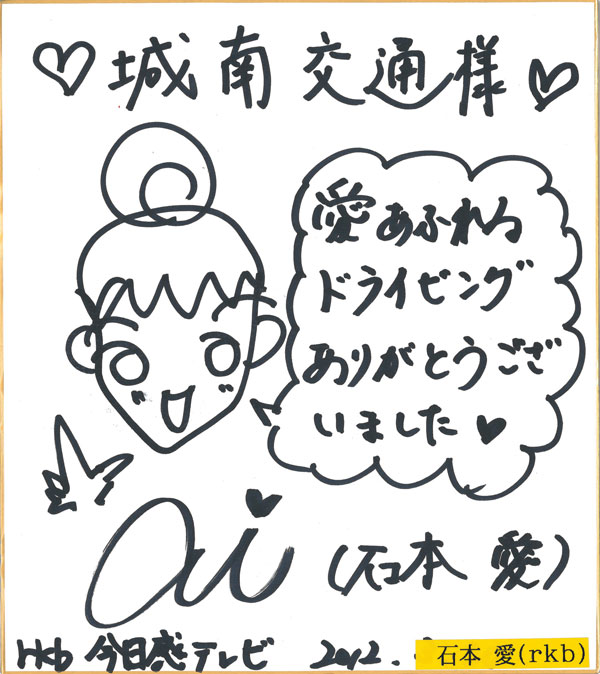 ♡城南交通様♡
愛あふれる
ドライビング
ありがとうござ
いました♥
ai (石本 愛)
rkb 今日感テレビ 2012.
石本 愛(rkb)